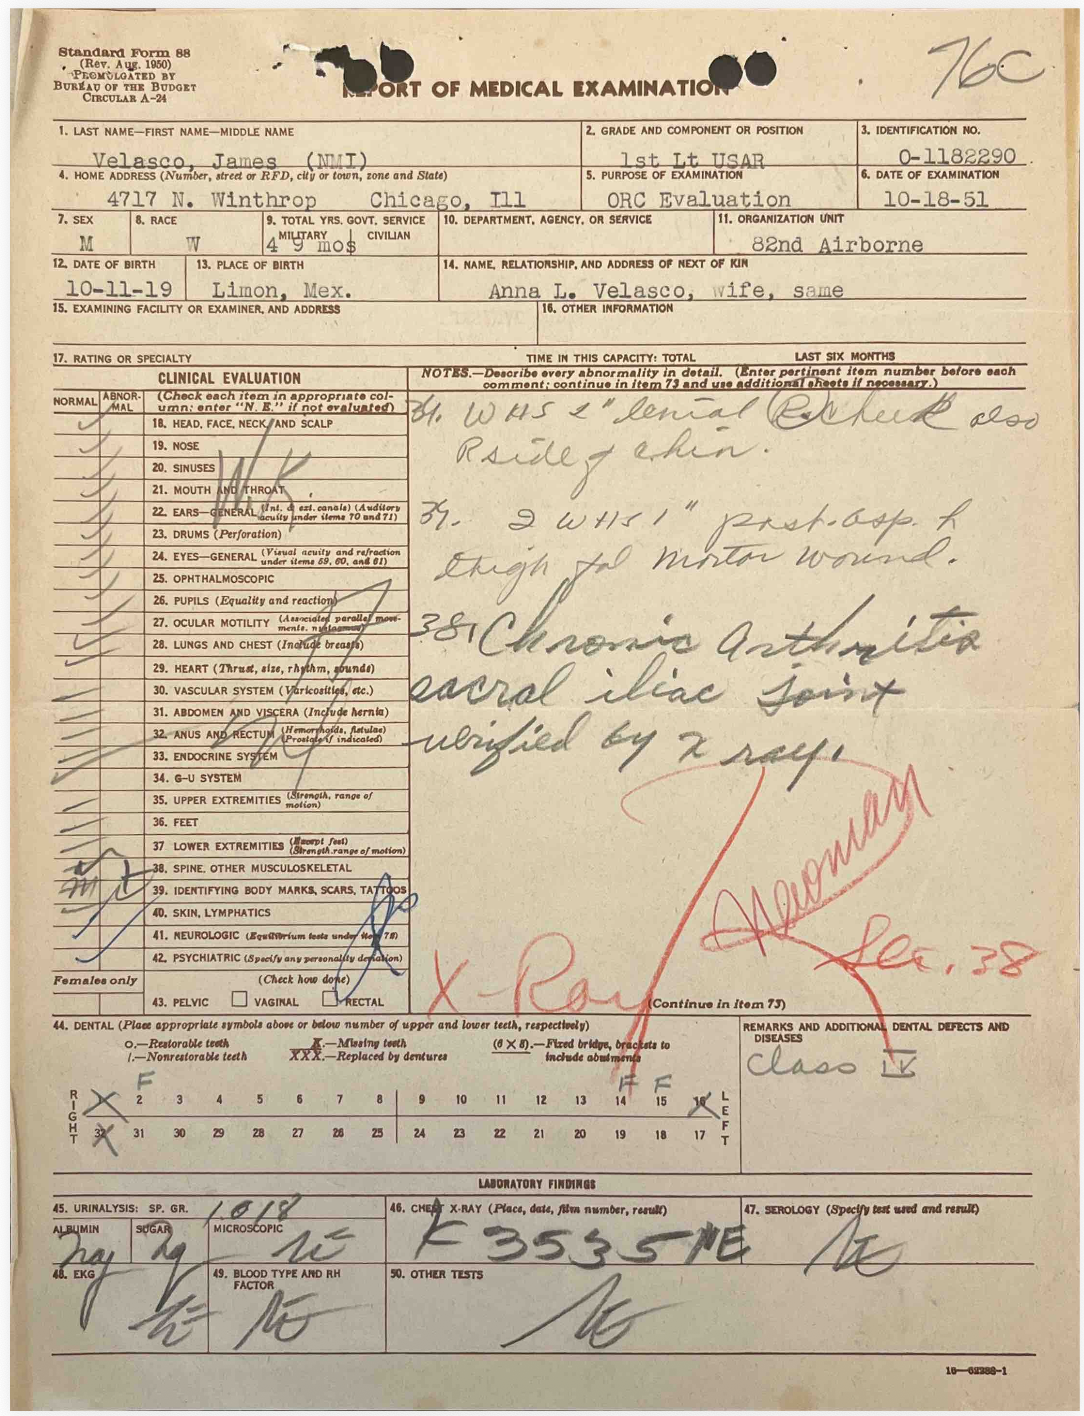 Standard Form 88
(Rev. Aug. 1950)
PROMULGATED BY
BUREAU OF THE BUDGET
CIRCULAR A-24
REPORT OF MEDICAL EXAMINATION
76C
1. LAST NAME—FIRST NAME—MIDDLE NAME
Velasco, James (NMI)
2. GRADE AND COMPONENT OR POSITION
1st Lt USAR
3. IDENTIFICATION NO.
O-1182290
4. HOME ADDRESS (Number, street or RFD, city or town, zone and State)
4717 N. Winthrop Chicago, Ill
5. PURPOSE OF EXAMINATION
ORC Evaluation
6. DATE OF EXAMINATION
10-18-51
7. SEX
M
8. RACE
W
9. TOTAL YRS. GOVT. SERVICE
MILITARY CIVILIAN
4 9 mos
10. DEPARTMENT, AGENCY, OR SERVICE
11. ORGANIZATION UNIT
82nd Airborne
12. DATE OF BIRTH
10-11-19
13. PLACE OF BIRTH
Limon, Mex.
14. NAME, RELATIONSHIP, AND ADDRESS OF NEXT OF KIN
Anna L. Velasco, wife, same
15. EXAMINING FACILITY OR EXAMINER, AND ADDRESS
16. OTHER INFORMATION
17. RATING OR SPECIALTY
TIME IN THIS CAPACITY: TOTAL
LAST SIX MONTHS
CLINICAL EVALUATION
NORMAL
ABNOR-
MAL
(Check each item in appropriate col-
umn; enter "N. E." if not evaluated)
18. HEAD, FACE, NECK, AND SCALP
19. NOSE
20. SINUSES
21. MOUTH AND THROAT
22. EARS—GENERAL (Int. & ext. canals) (Auditory
acuity under items 70 and 71)
23. DRUMS (Perforation)
24. EYES—GENERAL (Visual acuity and refraction
under items 59, 60, and 61)
25. OPHTHALMOSCOPIC
26. PUPILS (Equality and reaction)
27. OCULAR MOTILITY (Associated parallel move-
ments, nystagmus)
28. LUNGS AND CHEST (Include breasts)
29. HEART (Thrust, size, rhythm, sounds)
30. VASCULAR SYSTEM (Varicosities, etc.)
31. ABDOMEN AND VISCERA (Include hernia)
32. ANUS AND RECTUM (Hemorrhoids, fistulae)
(Prostate if indicated)
33. ENDOCRINE SYSTEM
34. G-U SYSTEM
35. UPPER EXTREMITIES (Strength, range of
motion)
36. FEET
37 LOWER EXTREMITIES (Except feet)
(Strength, range of motion)
38. SPINE, OTHER MUSCULOSKELETAL
39. IDENTIFYING BODY MARKS, SCARS, TATTOOS
40. SKIN, LYMPHATICS
41. NEUROLOGIC (Equilibrium tests under item 72)
42. PSYCHIATRIC (Specify any personality deviation)
Females only
(Check how done)
43. PELVIC VAGINAL RECTAL
NOTES.—Describe every abnormality in detail. (Enter pertinent item number before each
comment; continue in item 73 and use additional sheets if necessary.)
39. WHS 2" R cheek also
R side of chin.
39. 2 WHS 1" post. asp.
thigh mortar wound.
38. Chronic Arthritis
sacral iliac joint
verified by x ray.
X-Ray
Sec. 38
(Continue in item 73)
44. DENTAL (Place appropriate symbols above or below number of upper and lower teeth, respectively)
O.—Restorable teeth
/.—Nonrestorable teeth
X.—Missing teeth
XXX.—Replaced by dentures
(6 X 8).—Fixed bridge, brackets to
include abutments
REMARKS AND ADDITIONAL DENTAL DEFECTS AND
DISEASES
Class IV
F F F
RIGHT
2 3 4 5 6 7 8 9 10 11 12 13 14 15 16
32 31 30 29 28 27 26 25 24 23 22 21 20 19 18 17
LEFT
LABORATORY FINDINGS
45. URINALYSIS: SP. GR. 1018
ALBUMIN
Neg
SUGAR
Ng
MICROSCOPIC
NE
46. CHEST X-RAY (Place, date, film number, result)
3535 NE
47. SEROLOGY (Specify test used and result)
NE
48. EKG
NE
49. BLOOD TYPE AND RH
FACTOR
NE
50. OTHER TESTS
NE
16—62288-1